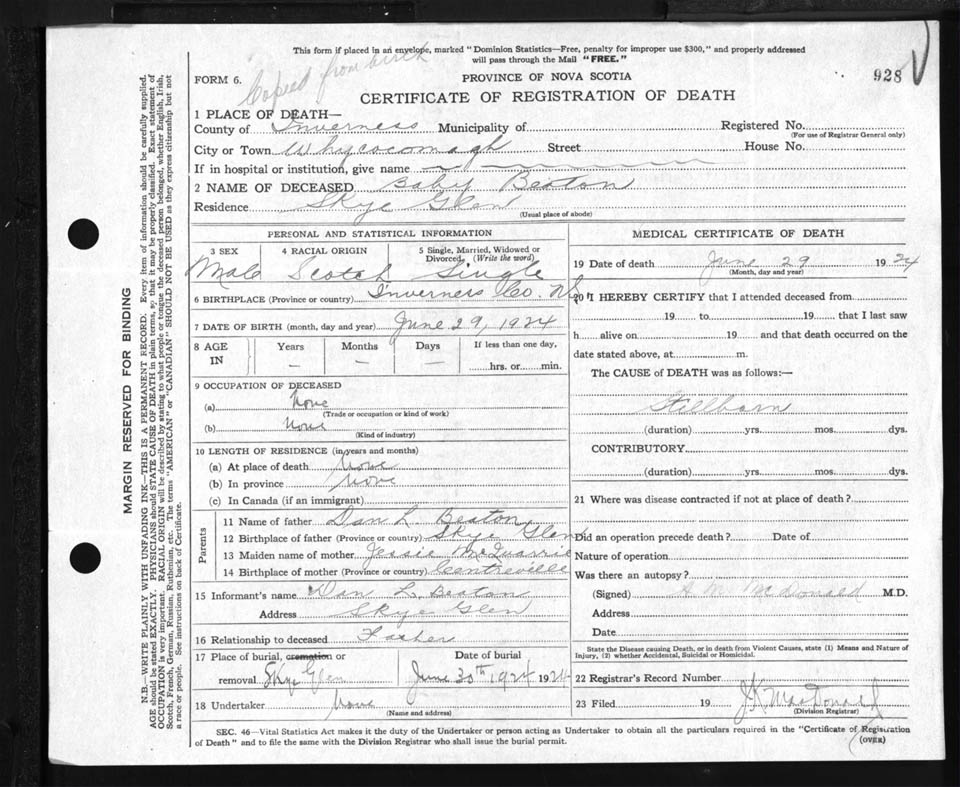 This form if placed in an envelope, marked "Dominion Statistics—Free, penalty for improper use $300," and properly addressed
will pass through the Mail "FREE."
FORM 6.
Copied from birth
PROVINCE OF NOVA SCOTIA
928
CERTIFICATE OF REGISTRATION OF DEATH
1 PLACE OF DEATH—
County of Inverness Municipality of Registered No.
(For use of Registrar General only)
City or Town Whycocomagh Street House No.
If in hospital or institution, give name
2 NAME OF DECEASED Baby Beaton
Residence Skye Glen
(Usual place of abode)
PERSONAL AND STATISTICAL INFORMATION
3 SEX 4 RACIAL ORIGIN 5 Single, Married, Widowed or
Divorced, (Write the word)
Male Scotch Single
6 BIRTHPLACE (Province or country) Inverness Co. NS
7 DATE OF BIRTH (month, day and year) June 29, 1924
8 AGE
IN
Years Months Days If less than one day,
— — — hrs. or min.
9 OCCUPATION OF DECEASED
(a) None
(Trade or occupation or kind of work)
(b) None
(Kind of industry)
10 LENGTH OF RESIDENCE (in years and months)
(a) At place of death None
(b) In province None
(c) In Canada (if an immigrant)
Parents
11 Name of father Dan L. Beaton
12 Birthplace of father (Province or country) Skye Glen
13 Maiden name of mother Jessie McQuarrie
14 Birthplace of mother (Province or country) Centreville
15 Informant's name Dan L. Beaton
Address Skye Glen
16 Relationship to deceased Father
17 Place of burial, cremation or Date of burial
removal Skye Glen June 30th 1924 1924
18 Undertaker None
(Name and address)
MEDICAL CERTIFICATE OF DEATH
19 Date of death June 29 1924
(Month, day and year)
20 I HEREBY CERTIFY that I attended deceased from
19 to 19 that I last saw
h alive on 19 and that death occurred on the
date stated above, at m.
The CAUSE of DEATH was as follows:—
Stillborn
(duration) yrs. mos. dys.
CONTRIBUTORY
(duration) yrs. mos. dys.
21 Where was disease contracted if not at place of death?
Did an operation precede death? Date of
Nature of operation
Was there an autopsy?
(Signed) A M McDonald M.D.
Address
Date
State the Disease causing Death, or in death from Violent Causes, state (1) Means and Nature of
Injury, (2) whether Accidental, Suicidal or Homicidal.
22 Registrar's Record Number
23 Filed 19 J.K. MacDonald
(Division Registrar)
SEC. 46—Vital Statistics Act makes it the duty of the Undertaker or person acting as Undertaker to obtain all the particulars required in the "Certificate of Registration
of Death" and to file the same with the Division Registrar who shall issue the burial permit.
(OVER)
MARGIN RESERVED FOR BINDING
N.B.—WRITE PLAINLY WITH UNFADING INK—THIS IS A PERMANENT RECORD. Every item of information should be carefully supplied.
AGE should be stated EXACTLY. PHYSICIANS should STATE CAUSE OF DEATH in plain terms, so that it may be properly classified. Exact statement of
OCCUPATION is very important. RACIAL ORIGIN will be described by stating to what people or tongue the deceased person belonged, whether English, Irish,
Scotch, French, German, Russian, Ruthenian, etc. The terms "AMERICAN" or "CANADIAN" SHOULD NOT BE USED as they express citizenship but not
a race or people. See instructions on back of Certificate.